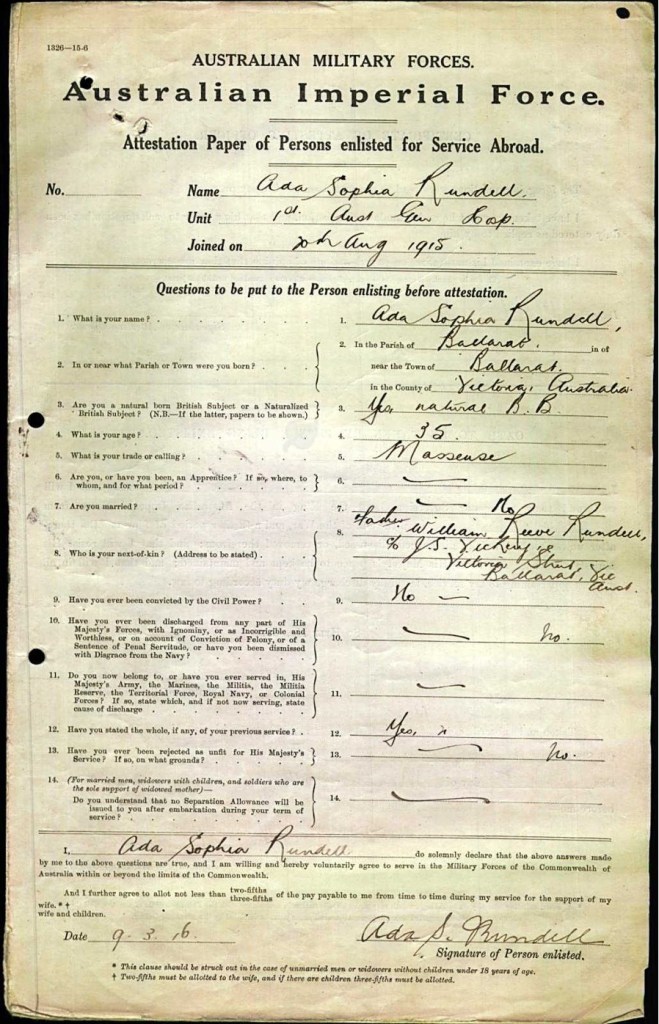 1326—15-6
AUSTRALIAN MILITARY FORCES.
Australian Imperial Force.
Attestation Paper of Persons enlisted for Service Abroad.
No. Name Ada Sophia Rundell.
Unit 1st. Aust Gen Hosp.
Joined on Aug 1915.
Questions to be put to the Person enlisting before attestation.
1. What is your name? 1. Ada Sophia Rundell,
2. In or near what Parish or Town were you born? 2. In the Parish of Ballarat. in of
near the Town of Ballarat.
in the County of Victoria, Australia.
3. Are you a natural born British Subject or a Naturalized British Subject? (N.B.—If the latter, papers to be shown.) 3. Yes, natural B. B
4. What is your age? 4. 35.
5. What is your trade or calling? 5. Masseuse
6. Are you, or have you been, an Apprentice? If so, where, to whom, and for what period? 6. —
7. Are you married? 7. — No
8. Who is your next-of-kin? (Address to be stated) 8. Father William Reeve Rundell,
c/o J.S.
Victoria Street
Ballarat, Vic
Aust.
9. Have you ever been convicted by the Civil Power? 9. No —
10. Have you ever been discharged from any part of His Majesty's Forces, with Ignominy, or as Incorrigible and Worthless, or on account of Conviction of Felony, or of a Sentence of Penal Servitude, or have you been dismissed with Disgrace from the Navy? 10. — No.
11. Do you now belong to, or have you ever served in, His Majesty's Army, the Marines, the Militia, the Militia Reserve, the Territorial Force, Royal Navy, or Colonial Forces? If so, state which, and if not now serving, state cause of discharge 11. —
12. Have you stated the whole, if any, of your previous service? 12. Yes,
13. Have you ever been rejected as unfit for His Majesty's Service? If so, on what grounds? 13. — No.
14. (For married men, widowers with children, and soldiers who are the sole support of widowed mother)—
Do you understand that no Separation Allowance will be issued to you after embarkation during your term of service? 14. —
I, Ada Sophia Rundell do solemnly declare that the above answers made
by me to the above questions are true, and I am willing and hereby voluntarily agree to serve in the Military Forces of the Commonwealth of
Australia within or beyond the limits of the Commonwealth.
And I further agree to allot not less than two-fifths three-fifths of the pay payable to me from time to time during my service for the support of my
wife. * †
wife and children.
Date 9. 3. 16. Ada S. Rundell
Signature of Person enlisted.
* This clause should be struck out in the case of unmarried men or widowers without children under 18 years of age.
† Two-fifths must be allotted to the wife, and if there are children three-fifths must be allotted.